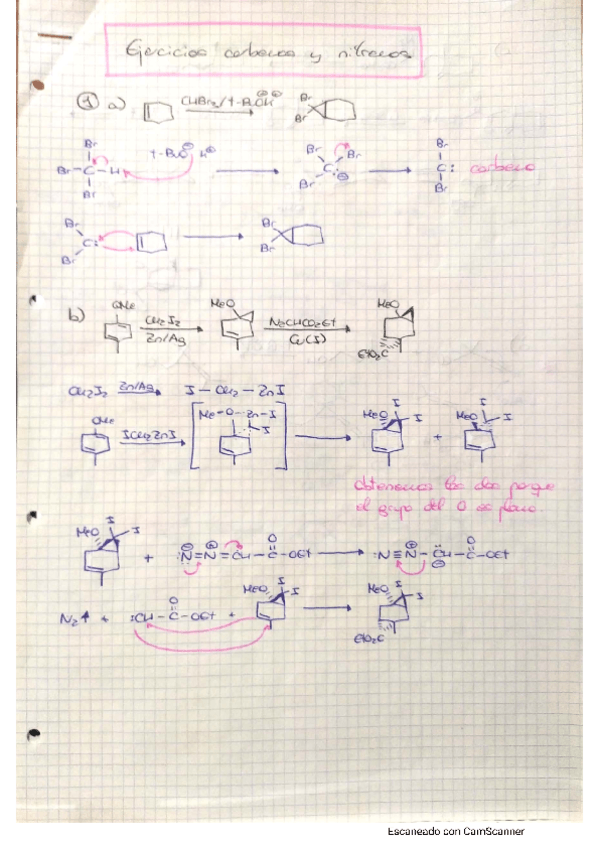 Ejercicios carbenos y nitrenos
① a) CHBr₃/t-BuO⊖H⊕ Br Br
Br t-BuO⊖ H⊕ Br Br Br
Br-C-H C⊖ C: carbeno
Br Br Br
Br C: Br
Br Br
b) OMe CH₂I₂ MeO N₂CHCO₂Et MeO
Zn/Ag Cu(I) EtO₂C
CH₂I₂ Zn/Ag I-CH₂-ZnI
OMe ICH₂ZnI Me-O--Zn-I I MeO I I + MeO I I
obtenemos los dos porque
el grupo del O es plano.
MeO I I + :N=N=CH-C-OEt O :N≡N-CH-C-OEt O
N₂↑ + :CH-C-OEt O + MeO I I MeO I I
EtO₂C
Escaneado con CamScanner